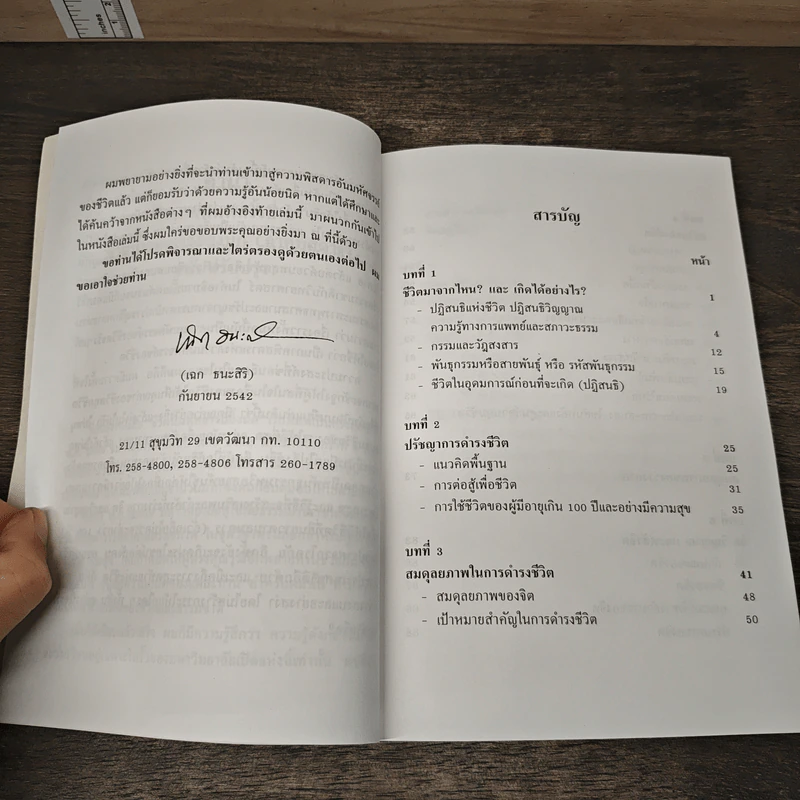 ผมพยายามอย่างยิ่งที่จะนำท่านเข้ามาสู่ความพิสดารอันมหัศจรรย์
ของชีวิตแล้ว แต่ก็ยอมรับว่าด้วยความรู้อันน้อยนิด หากแต่ได้ศึกษาและ
ได้ค้นคว้าจากหนังสือต่างๆ ที่ผมอ้างอิงท้ายเล่มนี้ มาผนวกกันเข้าไป
ในหนังสือเล่มนี้ ซึ่งผมใคร่ขอขอบพระคุณอย่างยิ่งมา ณ ที่นี้ด้วย
ขอท่านได้โปรดพิจารณาและไตร่ตรองดูด้วยตนเองต่อไป ผม
ขอเอาใจช่วยท่าน
(เฉก ธนะสิริ)
กันยายน 2542
21/11 สุขุมวิท 29 เขตวัฒนา กท. 10110
โทร. 258-4800, 258-4806 โทรสาร 260-1789
สารบัญ
หน้า
บทที่ 1
ชีวิตมาจากไหน? และ เกิดได้อย่างไร? 1
- ปฏิสนธิแห่งชีวิต ปฏิสนธิวิญญาณ
ความรู้ทางการแพทย์และสภาวะธรรม 4
- กรรมและวัฏสงสาร 12
- พันธุกรรมหรือสายพันธุ์ หรือ รหัสพันธุกรรม 15
- ชีวิตในอุดมการณ์ก่อนที่จะเกิด (ปฏิสนธิ) 19
บทที่ 2
ปรัชญาการดำรงชีวิต 25
- แนวคิดพื้นฐาน 25
- การต่อสู้เพื่อชีวิต 31
- การใช้ชีวิตของผู้มีอายุเกิน 100 ปีและอย่างมีความสุข 35
บทที่ 3
สมดุลยภาพในการดำรงชีวิต 41
- สมดุลยภาพของจิต 48
- เป้าหมายสำคัญในการดำรงชีวิต 50
inches
1